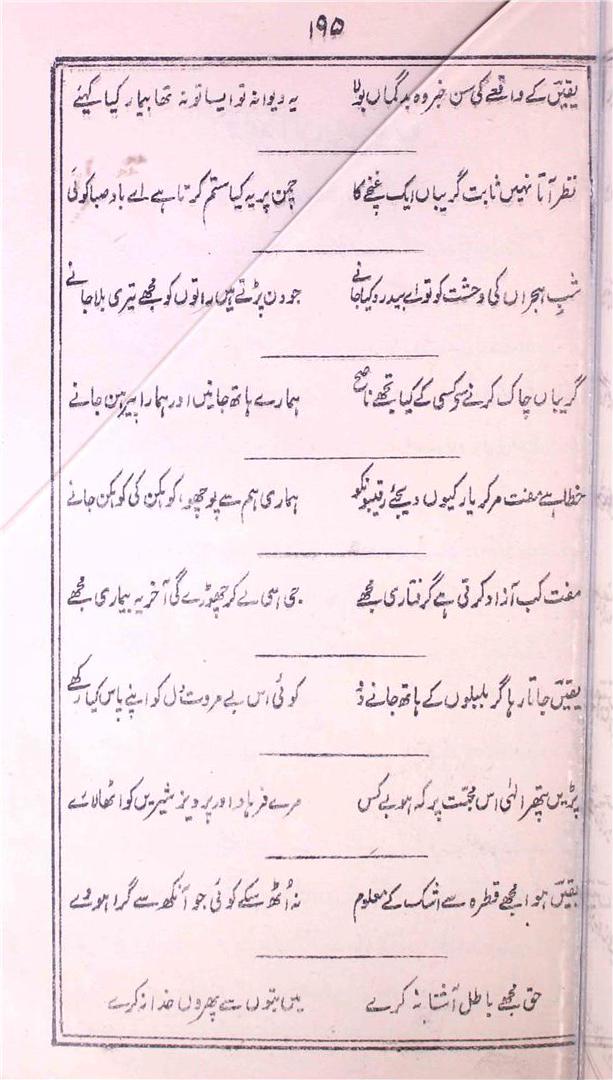 ۱۹۵
یقیںؔ کے واقعے کی سن خبر وہ بدگماں بولا یہ دیوانہ تو ایسا تو نہ تھا بیمار کیا کہیئے
نظر آتا نہیں ثابت گریباں ایک غنچے کا چمن پر یہ کیا ستم کرتا ہے اے باد صبا کوئی
شبِ ہجراں کی وحشت کو تو اے بیدرد کیا جانے جو دن پڑتے ہیں راتوں کو مجھے تیری بلا جانے
گریباں چاک کرنے سے کسی کے کیا تجھے ناصح ہمارے ہاتھ جانیں اور ہمارا پیرہن جانے
خطا ہے مفت مر کر یار کیوں دیجئے رقیبونکو ہماری ہم سے پوچھو، کوہکن کی کوہکن جانے
مفت کب آزاد کرتی ہے گرفتاری مجھے جی ہی لے کر چھوڑے گی آخر یہ بیماری مجھے
یقیںؔ جاتا رہا گر بلبلوں کے ہاتھ جانے دو کوئی اس بے مروت دل کو اپنے پاس کیا رکھے
پڑیں پتھر الٰہی اس محبّت پر کہ ہو بے کس مرے فرہاد اور پرویز شیریں کو اٹھا لائے
یقیںؔ ہوا مجھے قطرہ سے اشک کے معلوم نہ اُٹھ سکے کوئی جو آنکھ سے گرا ہووے
حق مجھے باطل آشنا نہ کرے میں بتوں سے پھروں خدا نہ کرے